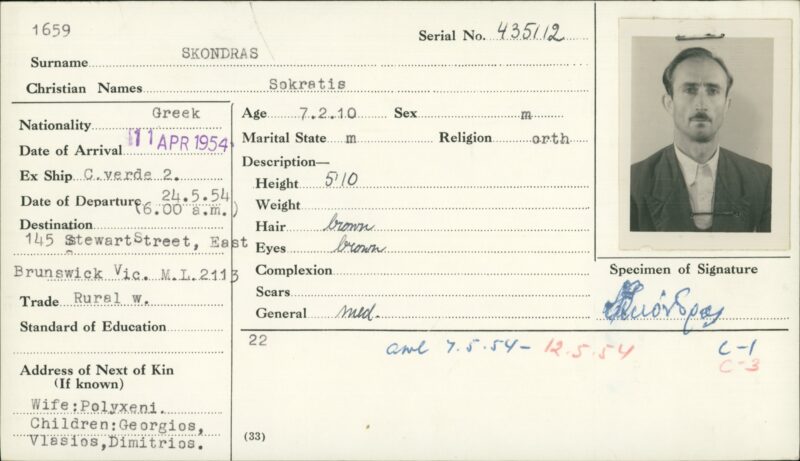 1659
Serial No. 435112
Surname SKONDRAS
Christian Names Sokratis
Nationality Greek
Date of Arrival 11 APR 1954
Ex Ship C.verde 2.
Date of Departure 24.5.54
(6.00 a.m.)
Destination
145 StewartStreet, East
Brunswick Vic. M.I.2113
Trade Rural w.
Standard of Education
Address of Next of Kin
(If known)
Wife:Polyxeni.
Children:Georgios,
Vlasios,Dimitrios.
Age 7.2.10 Sex m
Marital State m Religion orth
Description—
Height 5'10
Weight
Hair brown
Eyes brown
Complexion
Scars
General med.
Specimen of Signature
22
awl 7.5.54 - 12.5.54
C-1
C-3
(33)